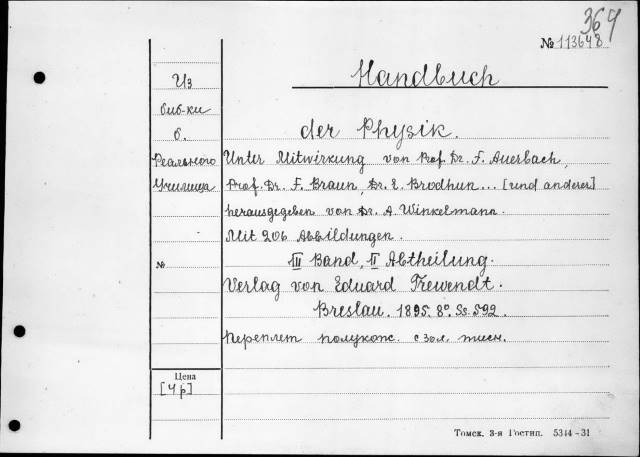 369
№ 113648
Handbuch
Из
биб-ки
б.
Реального
Училища
№
der Physik.
Unter Mitwirkung von Prof. Dr. F. Auerbach,
Prof. Dr. F. Braun, Dr. E. Brodhun... [und anderer]
herausgegeben von Dr. A. Winkelmann.
Mit 206 Abbildungen.
III Band, II Abtheilung.
Verlag von Eduard Trewendt.
Breslau. 1895. 8°. Ss. 592.
Переплет полукож. с зол. тисн.
Цена
[4 р]
Томск. 3-я Гостип. 5344-31